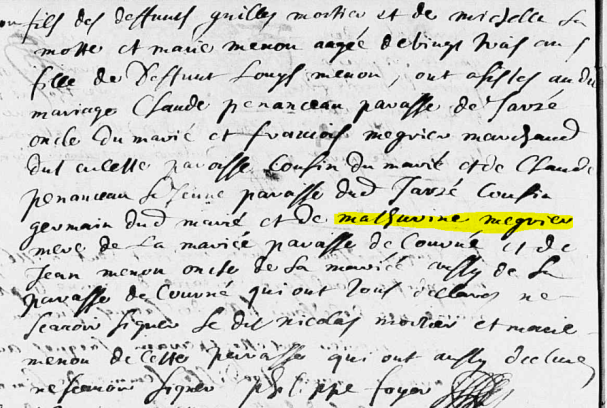 fils des deffunts guilles mortier et de michelle la
motte et marie menon aagée de vingt trois ans
fille de deffunt Louys menon, ont assistés audit
mariage Claude penanceau paroisse de Jarzé
oncle du marié et francois megrier marchand
de cette paroisse Cousin du marié et de Claude
penanceau le Jeune paroisse dud Jarzé Cousin
germain dud marié et de mathurine megrier
mere de La mariée paroisse de Couvné et de
Jean menon oncle de La mariée aussy de La
paroisse de Couvné qui ont tous declarés ne
scavoir signer Le dit nicolas mortier et marie
menon de Cette paroisse qui ont aussy declaré
ne scavoir signer philippe foyer